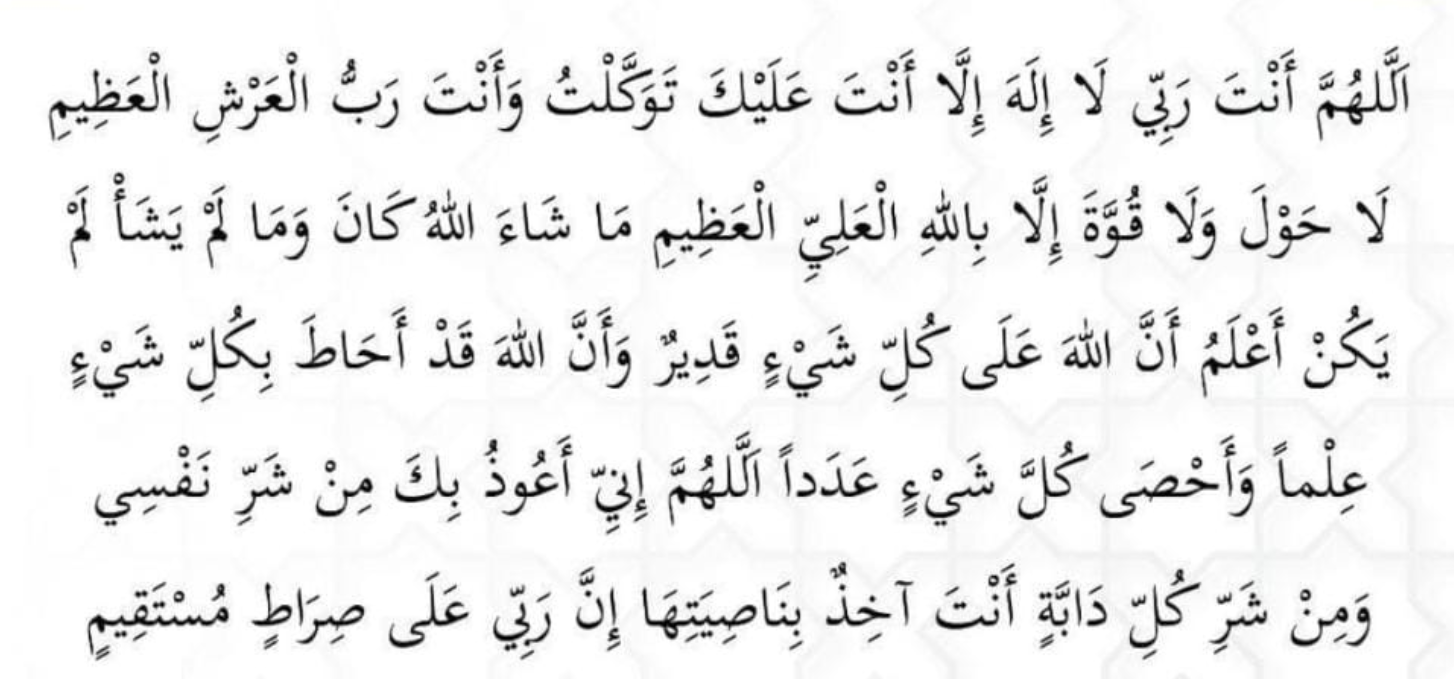 اَللَّهُمَّ أَنْتَ رَبِّي لَا إِلَهَ إِلَّا أَنْتَ عَلَيْكَ تَوَكَّلْتُ وَأَنْتَ رَبُّ الْعَرْشِ الْعَظِيمِ
لَا حَوْلَ وَلَا قُوَّةَ إِلَّا بِاللهِ الْعَلِيِّ الْعَظِيمِ مَا شَاءَ اللهُ كَانَ وَمَا لَمْ يَشَأْ لَمْ
يَكُنْ أَعْلَمُ أَنَّ اللهَ عَلَى كُلِّ شَيْءٍ قَدِيرٌ وَأَنَّ اللهَ قَدْ أَحَاطَ بِكُلِّ شَيْءٍ
عِلْماً وَأَحْصَى كُلَّ شَيْءٍ عَدَداً اَللَّهُمَّ إِنِّي أَعُوذُ بِكَ مِنْ شَرِّ نَفْسِي
وَمِنْ شَرِّ كُلِّ دَابَّةٍ أَنْتَ آخِذٌ بِنَاصِيَتِهَا إِنَّ رَبِّي عَلَى صِرَاطٍ مُسْتَقِيمٍ